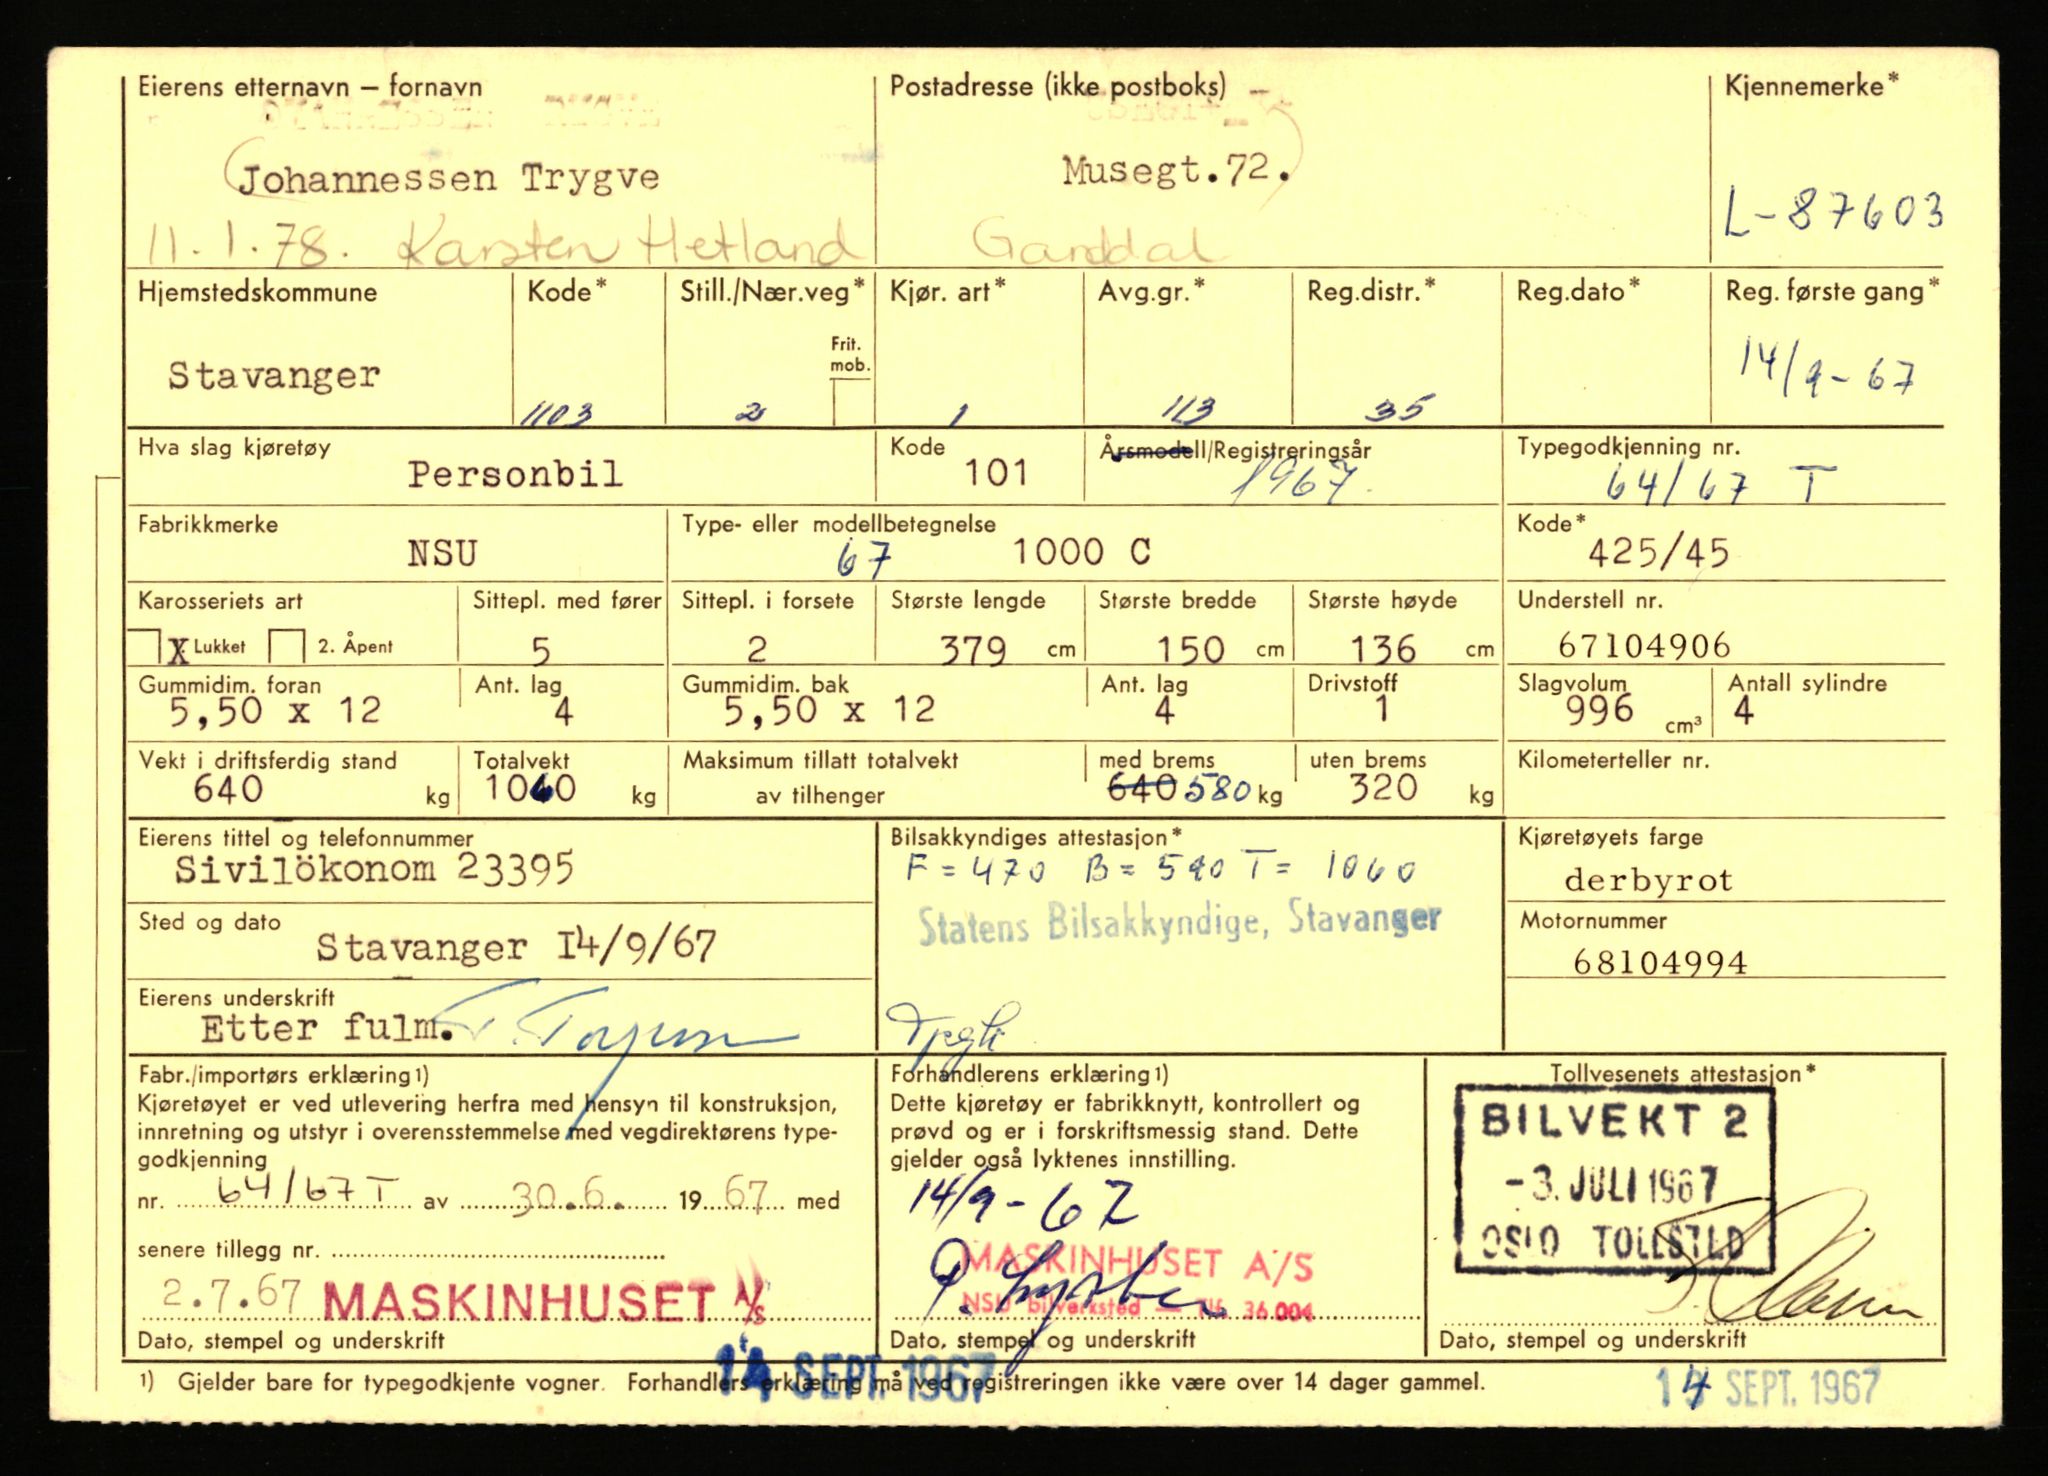 Eierens etternavn – fornavn
Postadresse (ikke postboks)
Kjennemerke*
Johannessen Trygve
Musegt.72.
L-87603
11.1.78. Karsten Hetland
Ganddal
Hjemstedskommune
Kode*
Still./Nær.veg*
Kjør. art*
Avg.gr.*
Reg.distr.*
Reg.dato*
Reg. første gang*
Frit. mob.
Stavanger
1103
2
1
113
35
14/9-67
Hva slag kjøretøy
Personbil
Kode
101
Årsmodell/Registreringsår
1967
Typegodkjenning nr.
64/67 T
Fabrikkmerke
NSU
Type- eller modellbetegnelse
67 1000 C
Kode*
425/45
Karosseriets art
X Lukket
2. Åpent
Sittepl. med fører
5
Sittepl. i forsete
2
Største lengde
379 cm
Største bredde
150 cm
Største høyde
136 cm
Understell nr.
67104906
Gummidim. foran
5,50 x 12
Ant. lag
4
Gummidim. bak
5,50 x 12
Ant. lag
4
Drivstoff
1
Slagvolum
996 cm³
Antall sylindre
4
Vekt i driftsferdig stand
640 kg
Totalvekt
1060 kg
Maksimum tillatt totalvekt
av tilhenger
med brems
640 580 kg
uten brems
320 kg
Kilometerteller nr.
Eierens tittel og telefonnummer
Sivilökonom 23395
Bilsakkyndiges attestasjon*
F = 470 B = 590 T = 1060
Statens Bilsakkyndige, Stavanger
Kjøretøyets farge
derbyrot
Sted og dato
Stavanger 14/9/67
Motornummer
68104994
Eierens underskrift
Etter fulm.
Fabr./importørs erklæring 1)
Kjøretøyet er ved utlevering herfra med hensyn til konstruksjon,
innretning og utstyr i overensstemmelse med vegdirektørens type-
godkjenning
nr. 64/67 T av 30.6. 1967 med
senere tillegg nr.
2.7.67 MASKINHUSET A/S
Dato, stempel og underskrift
Forhandlerens erklæring 1)
Dette kjøretøy er fabrikknytt, kontrollert og
prøvd og er i forskriftsmessig stand. Dette
gjelder også lyktenes innstilling.
14/9-67
MASKINHUSET A/S
NSU bilverksted — Tlf. 36.004
Dato, stempel og underskrift
Tollvesenets attestasjon*
BILVEKT 2
-3. JULI 1967
OSLO TOLLSTED
Dato, stempel og underskrift
14 SEPT. 1967
1) Gjelder bare for typegodkjente vogner. Forhandlers erklæring må ved registreringen ikke være over 14 dager gammel.
14 SEPT. 1967